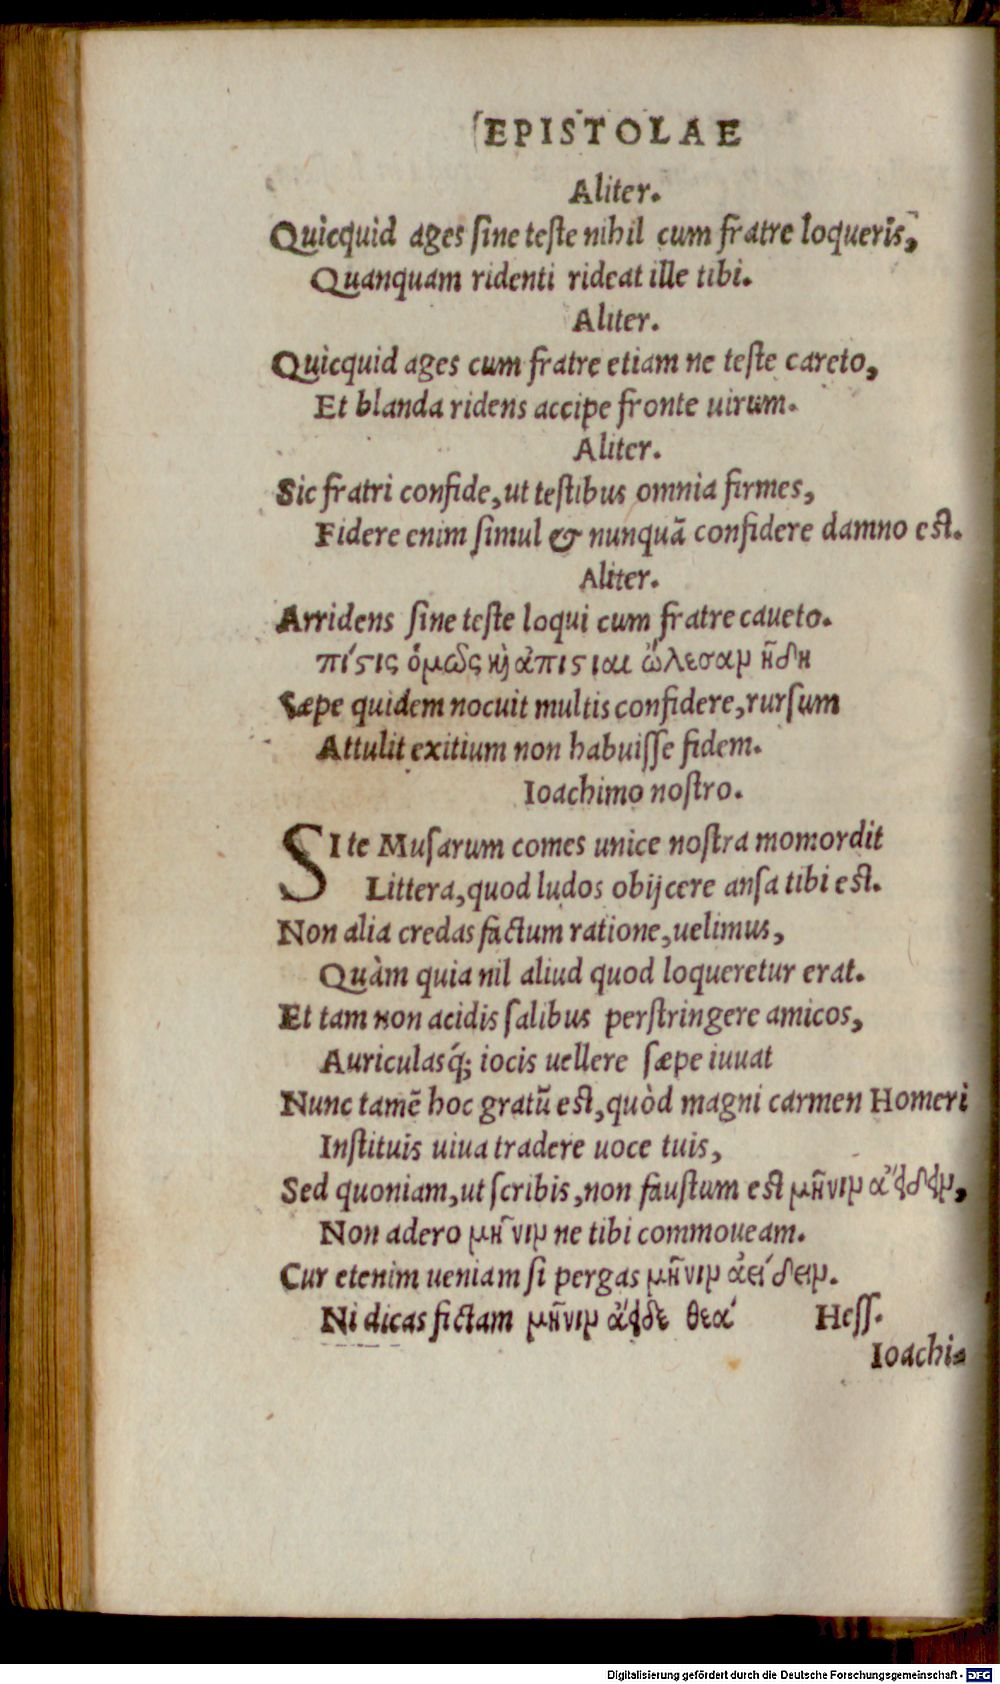 EPISTOLAE
Aliter.
Quicquid ages ſine teſte nihil cum fratre loqueris,
Quanquam ridenti rideat ille tibi.
Aliter.
Quicquid ages cum fratre etiam ne teſte careto,
Et blanda ridens accipe fronte uirum.
Aliter.
Sic fratri confide, ut teſtibus omnia firmes,
Fidere enim ſimul & nunquã confidere damno eſt.
Aliter.
Arridens ſine teſte loqui cum fratre caueto.
πίϛις ὁμῶς κὶ ἀπιϛίαι ὤλεσαν ἤδη
Sæpe quidem nocuit multis confidere, rurſum
Attulit exitium non habuiſſe fidem.
Ioachimo noſtro.
SI te Muſarum comes unice noſtra momordit
Littera, quod ludos obijcere anſa tibi eſt.
Non alia credas factum ratione, uelimus,
Quàm quia nil aliud quod loqueretur erat.
Et tam non acidis ſalibus perſtringere amicos,
Auriculasq́; iocis uellere ſæpe iuuat
Nunc tamẽ hoc gratũ eſt, quòd magni carmen Homeri
Inſtituis uiua tradere uoce tuis,
Sed quoniam, ut ſcribis, non fauſtum eſt μῆνιν ᾄδειν,
Non adero μῆνιν ne tibi commoueam.
Cur etenim ueniam ſi pergas μῆνιν ἀείδειν.
Ni dicas fictam μῆνιν ᾄδε θεά Heſſ.
Ioachi-
Digitalisierung gefördert durch die Deutsche Forschungsgemeinschaft - DFG